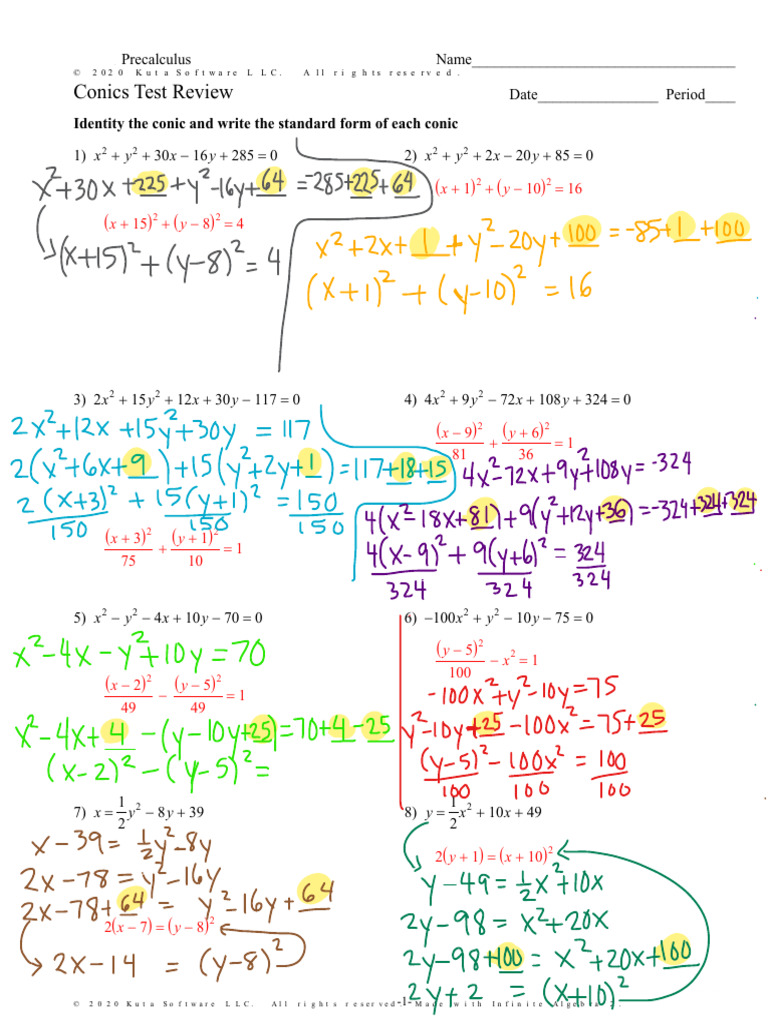 Precalculus Name
© 2020 Kuta Software LLC. All rights reserved.
Conics Test Review Date Period
Identity the conic and write the standard form of each conic
1) x² + y² + 30x − 16y + 285 = 0
x²+30x+225+y²-16y+64 = -285+225+64
(x + 15)² + (y − 8)² = 4
(x+15)²+(y-8)² = 4
2) x² + y² + 2x − 20y + 85 = 0
(x + 1)² + (y − 10)² = 16
x²+2x+1+y²-20y+100 = -85+1+100
(x+1)² + (y-10)² = 16
3) 2x² + 15y² + 12x + 30y − 117 = 0
2x²+12x+15y²+30y = 117
2(x²+6x+9)+15(y²+2y+1)=117+18+15
2(x+3)² + 15(y+1)² = 150
150 150 150
(x + 3)²/75 + (y + 1)²/10 = 1
4) 4x² + 9y² − 72x + 108y + 324 = 0
(x − 9)²/81 + (y + 6)²/36 = 1
4x²-72x+9y²+108y = -324
4(x²-18x+81)+9(y²+12y+36)=-324+324+324
4(x-9)² + 9(y+6)² = 324
324 324 324
5) x² − y² − 4x + 10y − 70 = 0
x²-4x-y²+10y = 70
(x − 2)²/49 − (y − 5)²/49 = 1
x²-4x+4-(y-10y+25)=70+4-25
(x-2)²-(y-5)² =
6) −100x² + y² − 10y − 75 = 0
(y − 5)²/100 − x² = 1
-100x²+y²-10y = 75
y²-10y+25-100x² = 75+25
(y-5)²-100x² = 100
100 100 100
7) x = 1/2 y² − 8y + 39
x-39 = ½y²-8y
2x-78 = y²-16y
2x-78+64 = y²-16y+64
2(x − 7) = (y − 8)²
2x-14 = (y-8)²
8) y = 1/2 x² + 10x + 49
2(y + 1) = (x + 10)²
y-49 = ½x²+10x
2y-98 = x²+20x
2y-98+100 = x²+20x+100
2y+2 = (x+10)²
© 2020 Kuta Software LLC. All rights reserved. -1- Made with Infinite Algebra 2.